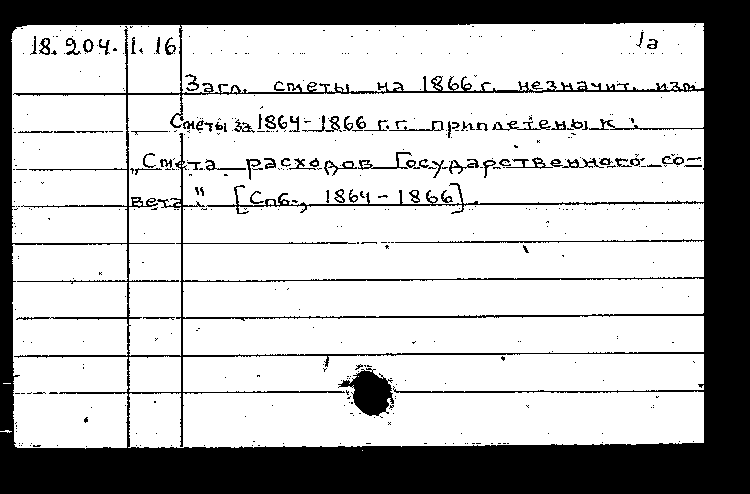 18.204. 1. 16 1а
Загл. сметы на 1866 г. незначит. изм.
Сметы за 1864-1866 г.г. приплетены к:
„Смета расходов Государственного со-
вета". [Спб., 1864-1866].